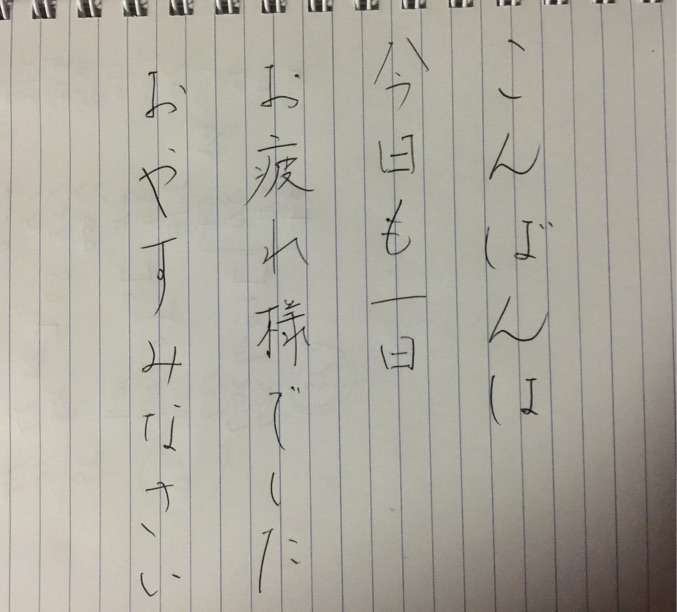 こんばんは
今日も一日
お疲れ様でした
おやすみなさい